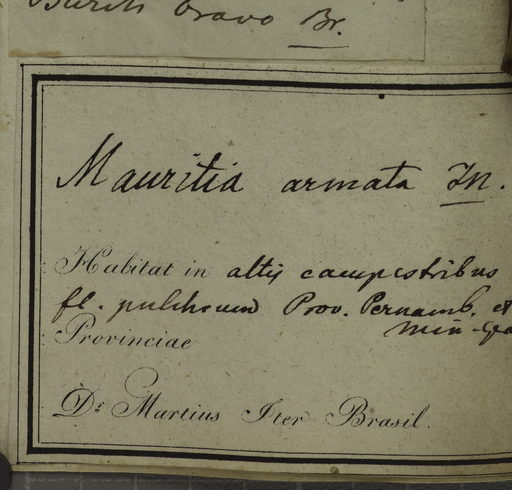 Buriti bravo Br.
Mauritia armata M.
Habitat in altis campestribus
fl. pulchrum Prov. Pernamb. et
Provinciae Min-Ge
Dr. Martius Iter Brasil.